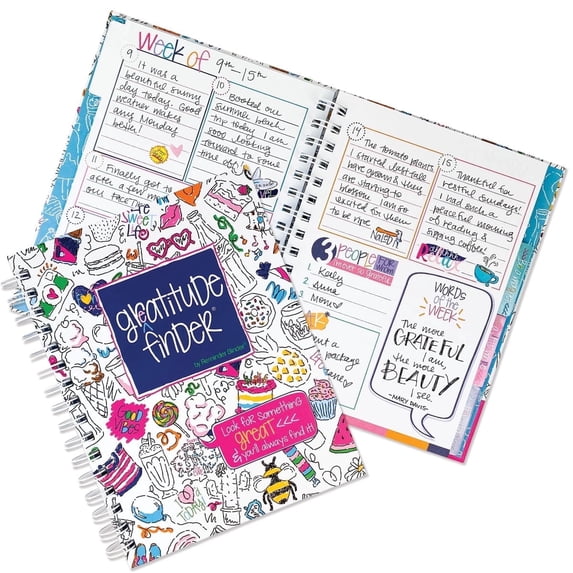 Week of 9th-15th
9
It was a
beautiful sunny
day today. Good
weather makes
any Monday
better!
10
Booked our
summer beach
trip today! I am
good looking
forward to some
time off!
11
Finally got to
after a few m
our face
12
14
The tomato plants
I started last fall
have grown & they
are starting to
blossom. I am so
excited for them
to be ripe
NAILED IT
15
Thankful for
restful Sundays!
I had such a
peaceful morning
of reading &
sipping coffee
3 PEOPLE FOR WHOM
I'M EVER SO GRATEFUL
1. Kailey
2. Anna
3. Mom
out a package
WORDS
of the
WEEK
The more
GRATEFUL
I am,
the more
BEAUTY
I see.
-MARY DAVIS-
Life is
sweet
greatitude
finder®
by Reminder Binder®
GOOD
VIBES
Look for something
great <<<
& you'll always find it!
TODAY!